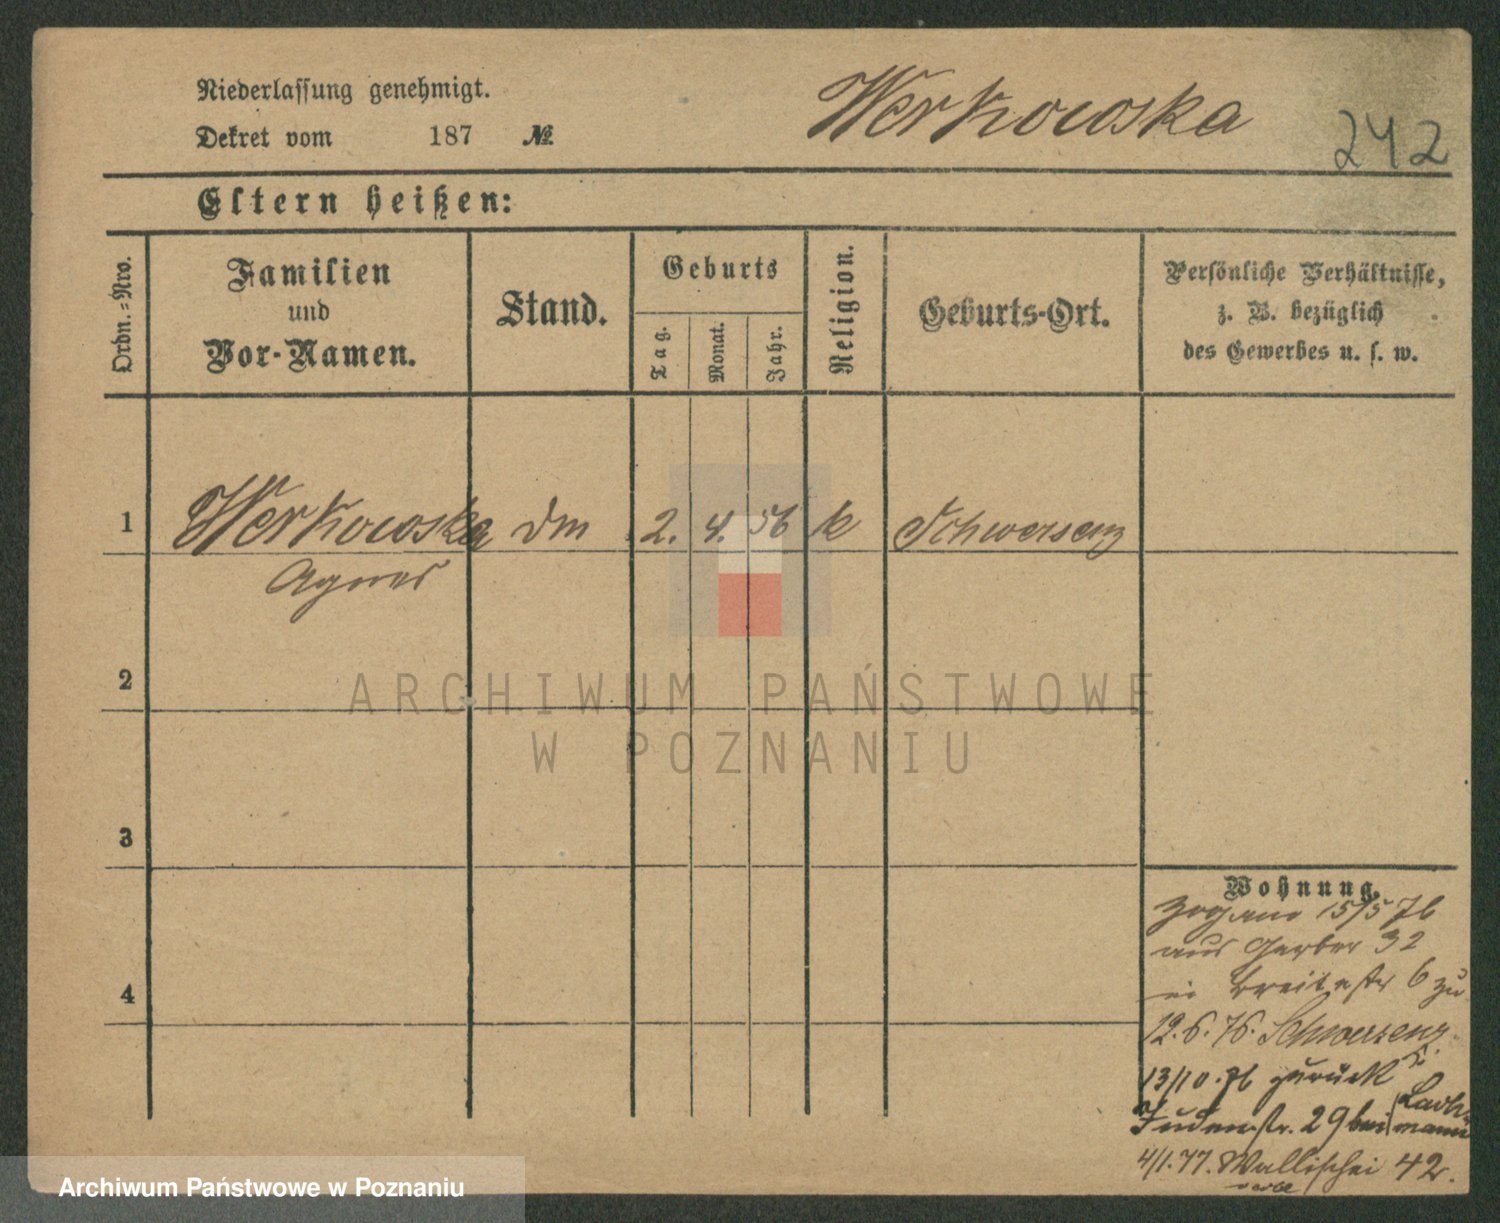 Niederlassung genehmigt.
Dekret vom 187 №
Werkowska
242
Eltern heißen:
Ordn.=Nro.
Familien
und
Vor-Namen.
Stand.
Geburts
Tag.
Monat.
Jahr.
Religion.
Geburts-Ort.
Persönliche Verhältnisse,
z. B. bezüglich
des Gewerbes u. s. w.
1 Werkowska Dm 2. 4. 56 k Schwersenz
Agnes
2
ARCHIWUM PAŃSTWOWE
W POZNANIU
3
4
Wohnung.
15/5 76
aus Gerber 32
in Breitestr 6 zu
12.6.76. Schwersenz
13/10.76 zurück
Judenstr. 29 bei Lach=
mann
4/1.77. Wallischei 42.
Archiwum Państwowe w Poznaniu